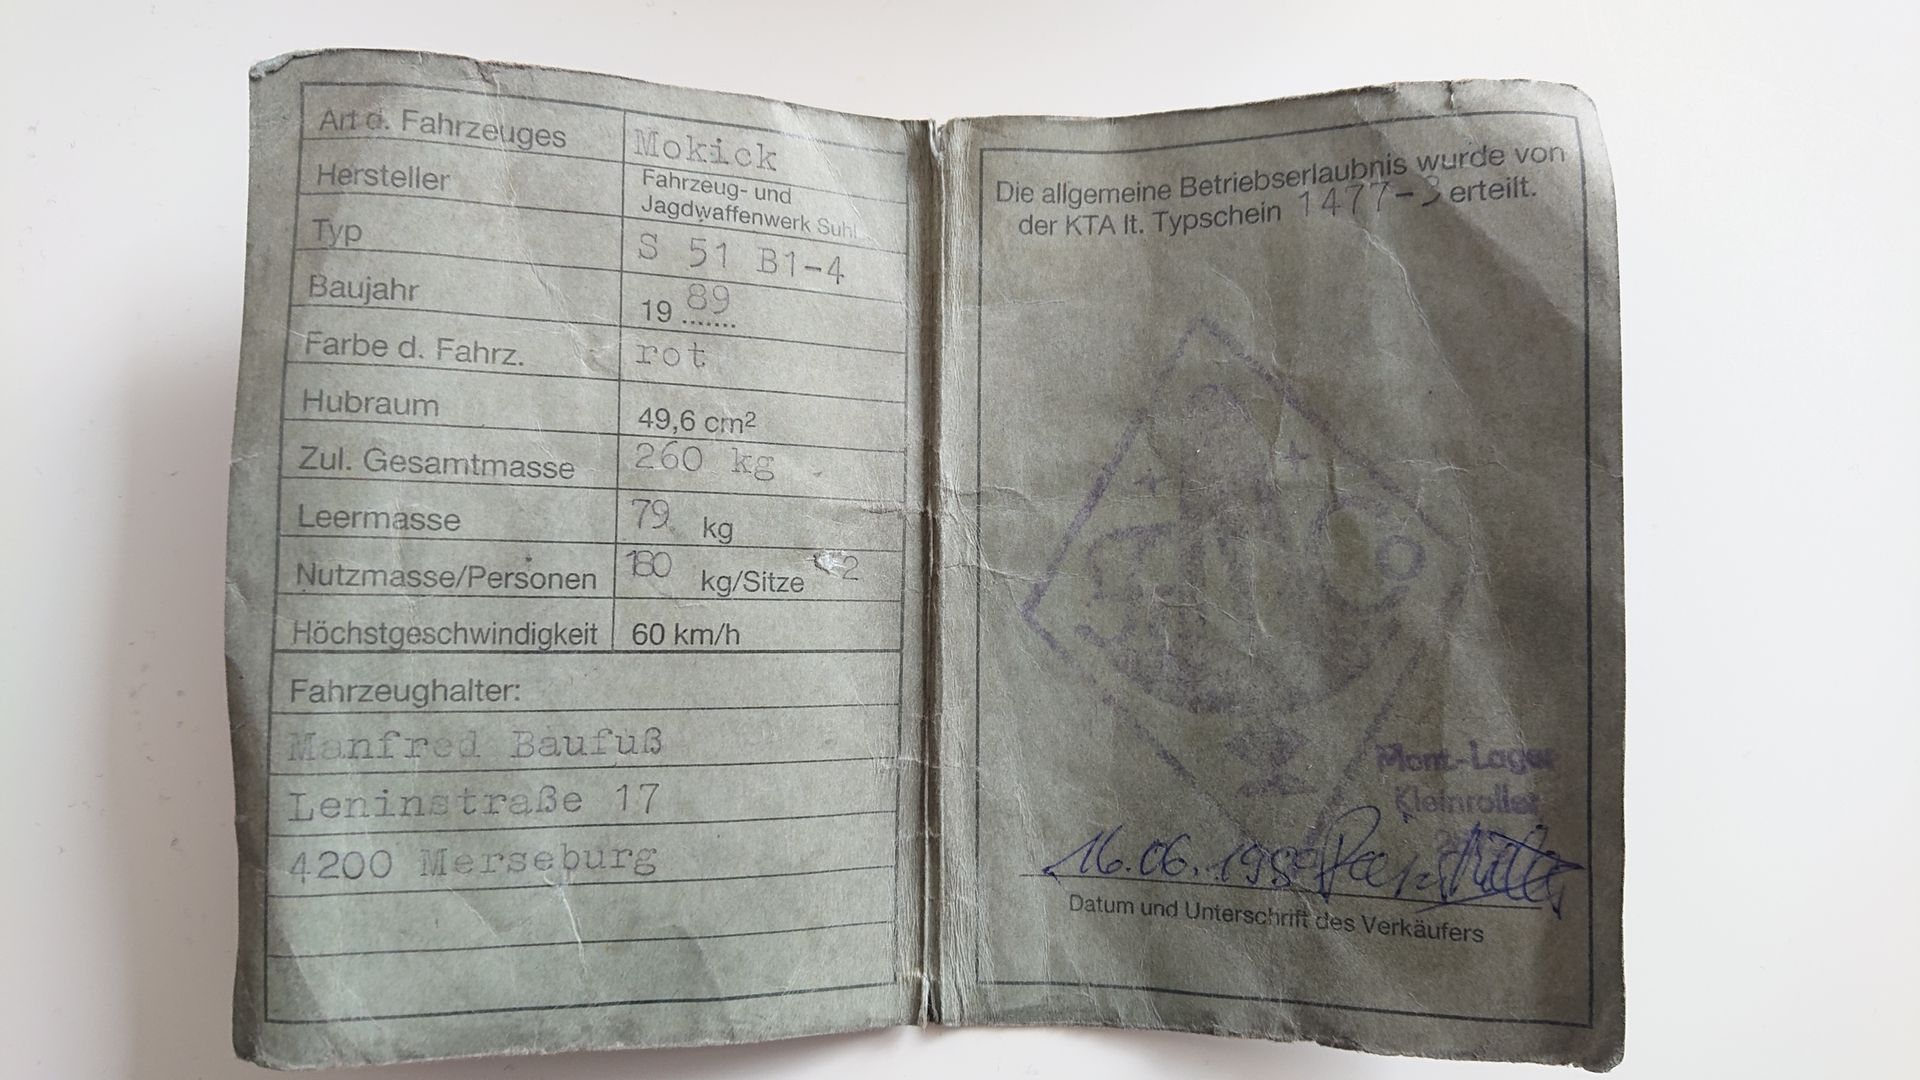 Art d. Fahrzeuges Mokick
Hersteller Fahrzeug- und
Jagdwaffenwerk Suhl
Typ S 51 B1-4
Baujahr 19 89
Farbe d. Fahrz. rot
Hubraum 49,6 cm²
Zul. Gesamtmasse 260 kg
Leermasse 79 kg
Nutzmasse/Personen 180 kg/Sitze 2
Höchstgeschwindigkeit 60 km/h
Fahrzeughalter:
Manfred Baufuß
Leninstraße 17
4200 Merseburg
Die allgemeine Betriebserlaubnis wurde von
der KTA lt. Typschein 1477-3 erteilt.
Mont-Lager
Kleinroller
16.06.1989
Datum und Unterschrift des Verkäufers